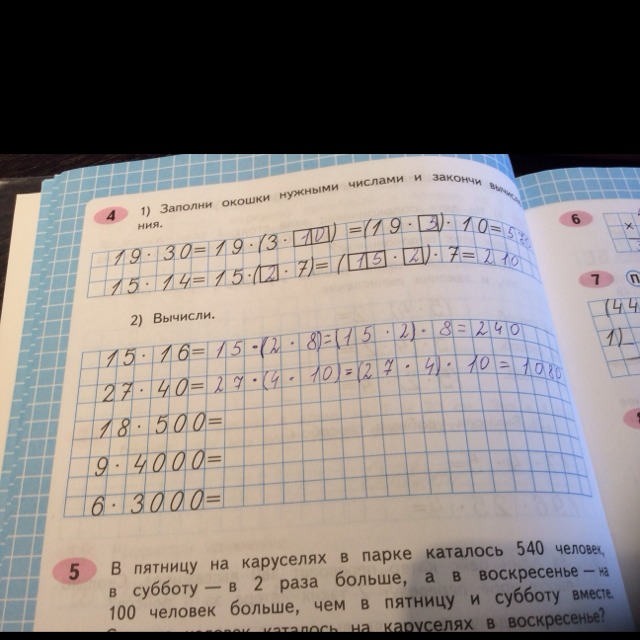 4 1) Заполни окошки нужными числами и закончи вычисле
ния.
19 · 30 = 19 · (3 · 10) = (19 · 3) · 10 = 570
15 · 14 = 15 · (2 · 7) = (15 · 2) · 7 = 210
2) Вычисли.
15 · 16 = 15 · (2 · 8) = (15 · 2) · 8 = 240
27 · 40 = 27 · (4 · 10) = (27 · 4) · 10 = 1080
18 · 500 =
9 · 4000 =
6 · 3000 =
5 В пятницу на каруселях в парке каталось 540 человек,
в субботу — в 2 раза больше, а в воскресенье — на
100 человек больше, чем в пятницу и субботу вместе.
человек каталось на каруселях в воскресенье?
6
×
7 П
(44
1)